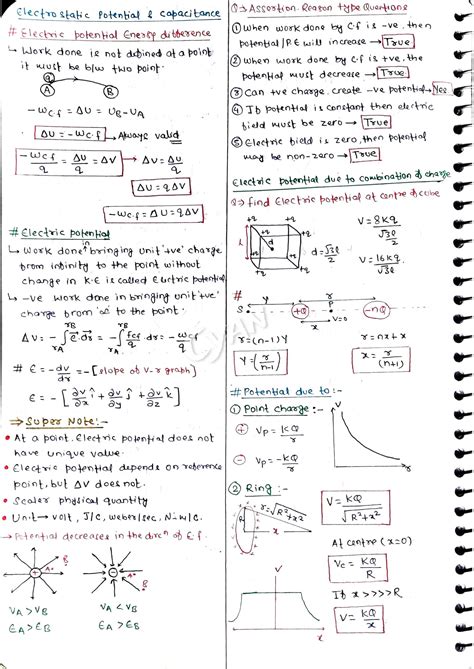 Electrostatic Potential & capacitance
# Electric potential Energy difference
↳ Work done is not defined at a point
it must be b/w two point.
A B
-Wc.f = ΔU = UB - UA
ΔU = -Wc.f → Always valid
-Wc.f/q = ΔU/q = ΔV → ΔV = ΔU/q
ΔU = qΔV
-Wc.f = ΔU = qΔV
# Electric potential
↳ Work done in bringing unit '+ve' charge
from infinity to the point without
change in K.E is called Electric potential
↳ -ve work done in bringing unit '+ve'
charge from '∞' to the point
ΔV = -∫ E.ds = -∫ fcf/q.ds = -Wc.f/q
rB rB
rA rA
# E = -dv/dr = -[slope of V-r graph]
E = -[∂v/∂x î + ∂v/∂y ĵ + ∂v/∂z k̂]
⇒ Super Note:-
• At a point Electric potential does not
have unique value.
• Electric potential depends on reference
point, but ΔV does not.
• Scaler physical quantity
• Unit → volt, J/C, weber/sec, N-m/C.
→ Potential decreases in the dircn of E.f
+ A B
- A B
VA > VB VA < VB
EA > EB EA > EB
Q⇒ Assertion Reason type Questions
① When work done by C.f is -ve, then
potential/P.E will increase → True
② When work done by C.f is +ve, the
potential must decrease → True
③ Can +ve charge, create -ve potential → Yes
④ If potential is constant then electric
field must be zero → True
⑤ Electric field is zero, then potential
may be non-zero → True
Electric potential due to combination of charge
Q⇒ find Electric potential at centre of cube
+q +q +q +q
l d
+q +q +q
d = √3l/2
V = 8kq/(√3l/2)
V = 16kq/√3l
#
S y +Q r P -nQ
x V=0
r = (n-1)Y r = nx + x
Y = (r/n-1) x = r/(n+1)
# Potential due to :-
① Point charge :-
⊕ VP = KQ/r
⊖ VP = -KQ/r
V r
② Ring :-
R r = √R²+x² x
V = KQ/√R²+x²
At centre (x=0)
Vc = KQ/R
If x >>>> R
V = KQ/x
V x